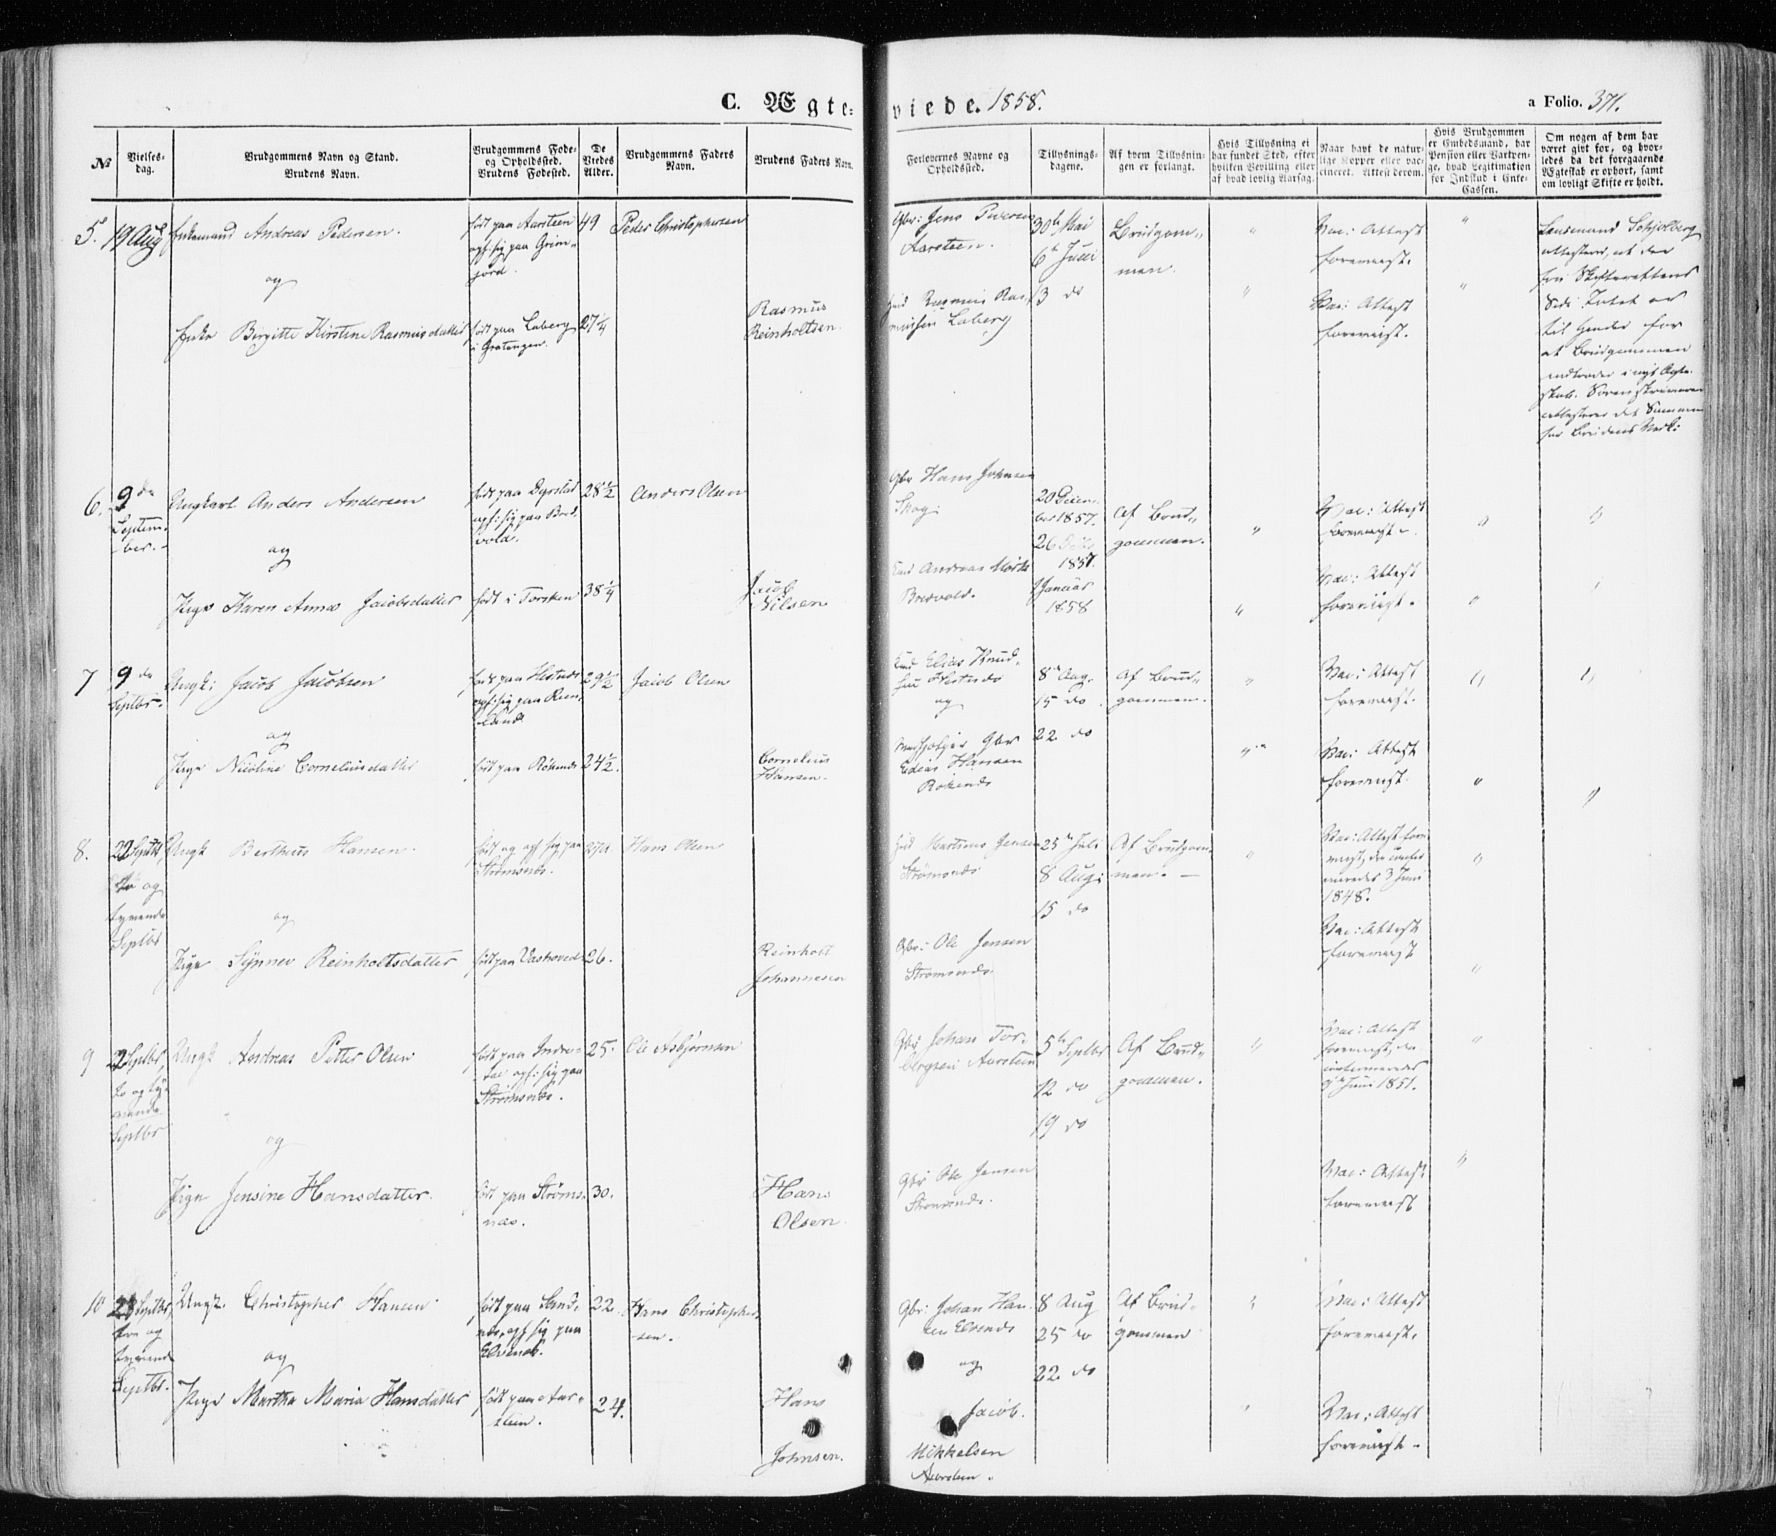 C. Ægte-
viede. 1858.
a Folio. 371.
№
Vielses-
dag.
Brudgommens Navn og Stand.
Brudens Navn.
Brudgommens Føde-
og Opholdssted.
Brudens Fødested.
De
Viedes
Alder.
Brudgommens Faders
Navn.
Brudens Faders Navn.
Forlovernes Navne og
Opholdssted.
Tillysnings-
dagene.
Af hvem Tillysnin-
gen er forlangt.
Hvis Tillysning ei
har fundet Sted, efter
hvilken Bevilling eller
af hvad lovlig Aarsag.
Naar havt de natur-
lige Kopper eller vac-
cineret. Attest derom.
Hvis Brudgommen
er Embedsmand, har
Pension eller Vartpen-
ge, hvad Legitimation
for Indskud i Enke-
Cassen.
Om nogen af dem har
været gift før, og hvor-
ledes da det foregaaende
Ægteskab er ophørt, samt
om lovligt Skifte er holdt.
5.
19 Aug
Enkemand Andreas Pedersen.
og
Enke Birgitte Kirstine Rasmusdatter
født paa Aarsteen
oph: sig paa Grom-
jord.
født paa Laberg
i Gratangen.
49
27 1/4
Peder Christophersen
Rasmus
Reinholtsen.
Gbr: Jens Pedersen
Aarsteen.
Rasmus Ras-
musen Laberg
30te Mai
6te Juni
13 do
Brudgom-
men.
Vac: Attest
foreviist.
Vac: Attest
foreviist.
Lensmand Schjelberg
attesterer, at der
fra Skifterettens
Side Intet er
til Hinder for
at Brudgommen
indtræder i nyt Ægte-
skab. Sorenskriveren
attesterer det Samme
for Brudens Vedk:
6.
9de
Septem-
ber.
Ungkarl Anders Andersen
og
Pige Karen Anna Jacobsdatter
født paa Dyrstad
oph: sig paa Bred-
vold.
født i Torsken
28 1/2
38 1/4
Anders Olsen
Jacob
Nilsen
Gbr Hans Johnsen
Skog
Andreas
Bredvold.
20 Decem-
ber 1857.
26
1857.
Januar
1858
Af Brud-
gommen.
Vac: Attest
foreviist.
Vac: Attest
foreviist.
7
9de
Septbr.
Ungk: Jacob Jacobsen
og
Pige Nicoline Corneliusdatter
født paa Hestnes
oph: sig paa
født paa Røkenes
29 1/2
24 1/2.
Jacob Olsen
Cornelius
Hansen.
Elias Knud-
sen Hestnes
og
Gbr
Hansen
Røkenes
8de Aug.
15 do
22. do
Af Brud-
gommen.
Vac: Attest
foreviist.
Vac: Attest
foreviist.
8.
22 Septbr
to og
tyvende
Septbr
Ungk Bertheus Hansen.
og
Pige Synnev Reinholtsdatter
født og oph sig paa
Strømsnes.
født paa Vashoved
26.
Hans Olsen
Reinholt
Johannesen
Martinus Jensen
Strømsnes
Gbr: Ole Jensen
Strømsnes.
25de Juli
8 Aug:
15 do
Af Brudgom-
men.
Vac: Attest fore-
viist, der confir-
meredes 3 Juni
1848.
Vac: Attest
foreviist
9
22 Septbr
to og ty-
vende
Septbr
Ungk Andreas Petter Olsen
og
Pige Jensine Hansdatter.
født paa Indre-
oph: sig paa
Strømsnes.
født paa Strøms-
nes.
25.
30.
Ole Asbjørnsen
Hans
Olsen
Gbr Johan Tor-
bergsen Aarsteen
Gbr Ole Jensen
Strømsnes.
5te Septbr
12 do
19 do
Af Brud-
gommen.
Vac: Attest
foreviist, da
confirmeredes
9de Juni 1851.
Vac: Attest
foreviist
10
23 Septbr,
tre og
tyvende
Septbr.
Ungk. Christopher Hansen
og
Pige Martha Maria Hansdatter
født paa Sand-
nes, oph sig paa
Elvenes.
født paa Aar-
steen.
22.
24.
Hans Christopher-
sen.
Hans
Johnsen.
Gbr: Johan Han-
sen Elvenes
og
Jacob.
Mikkelsen
Aarsteen.
8 Aug
25 do
22. do
Af Brud-
gommen
Vac: Attest
foreviist.
Vac: Attest
foreviist.